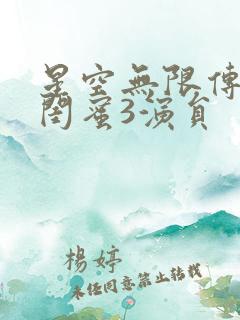 星空無限傳
閨蜜3-演員
楊婷
未經同意禁止轉載